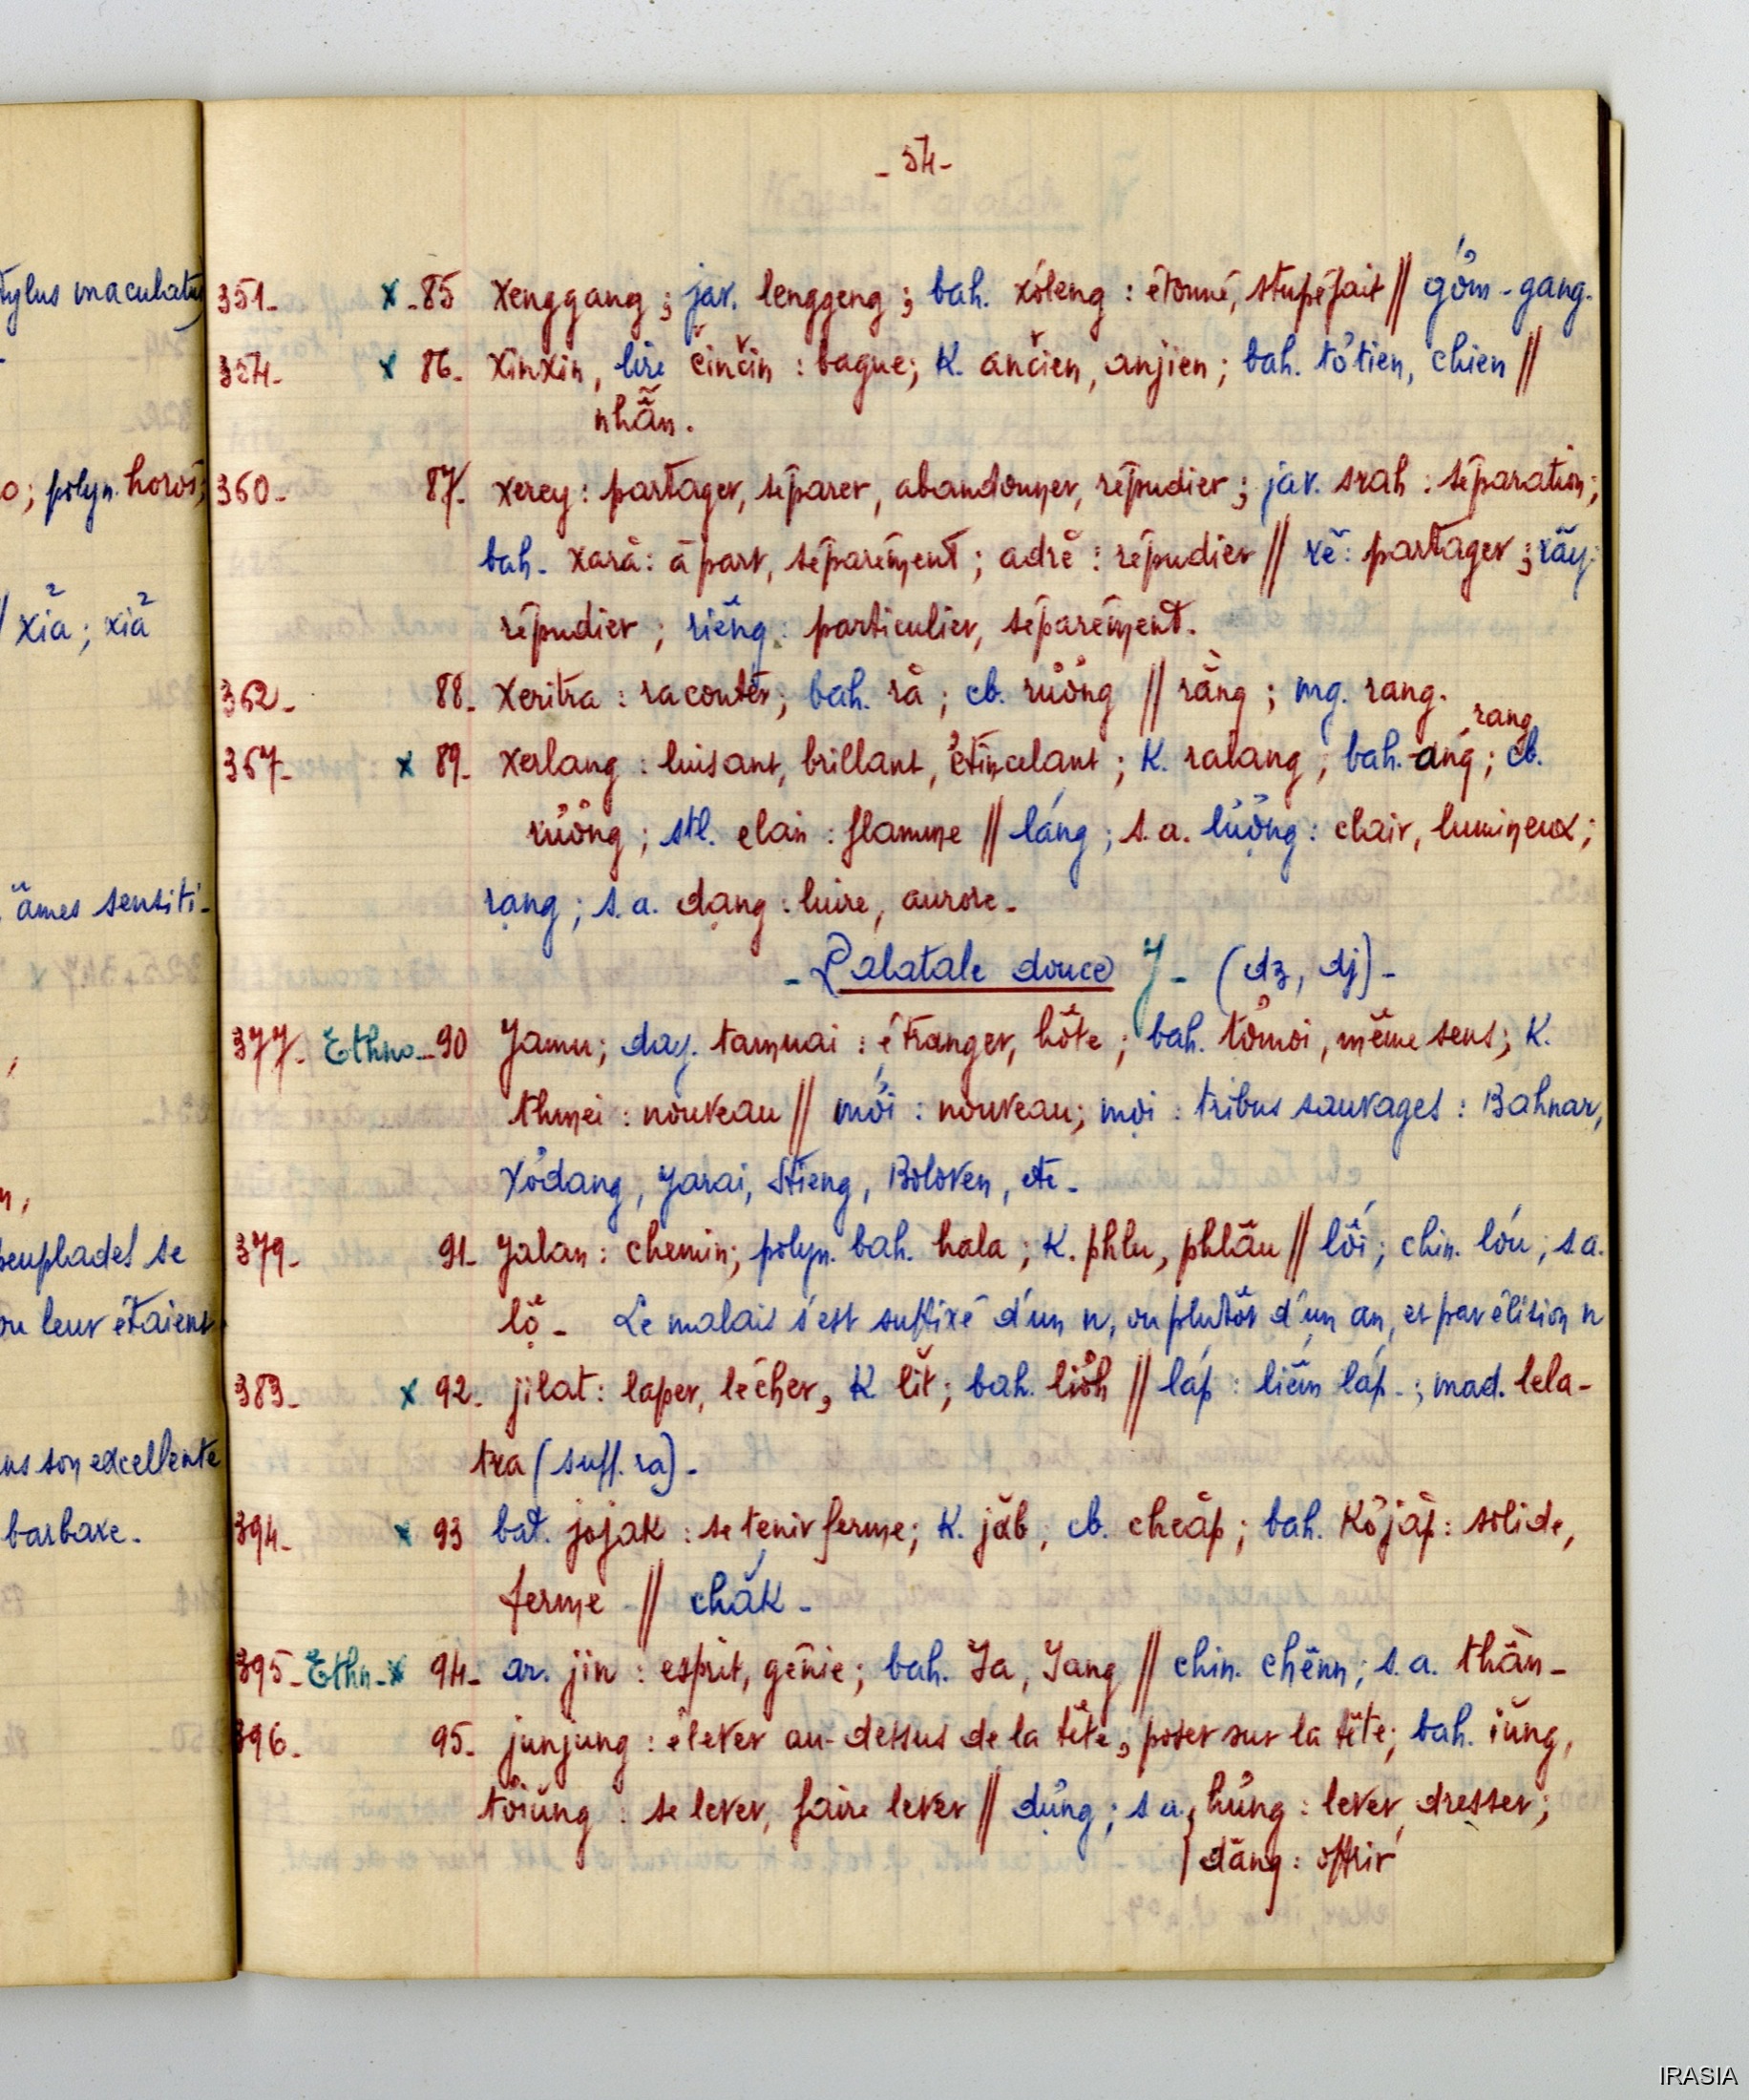 - 54 -
tylus maculatus
351- x - 85 xenggang ; jav. lenggeng ; bah. xơleng : étonné, stupéfait // gớm-gang.
354- x 86- xinxin, lire činčin : bague; K. ančien, anjien ; bah. tơtien, chien //
nhẫn.
o; polyn. horoi; 360- 87- xerey : partager, séparer, abandonner, répudier ; jav. srah : séparation;
bah. xară : à part, séparément ; adrĕ : répudier // xẽ : partager ; rẫy :
// xỉa ; xỉa
répudier ; riêng : particulier, séparément.
362- 88- xeritra : raconter ; bah. ră ; cb. rương // rằng ; mg. rang.
rang
367- x 89- xerlang : luisant, brillant, étincelant ; K. ralang ; bah. ang ; cb.
rương ; stl. elain : flamme // láng ; s. a. lượng : clair, lumineux ;
âmes sensiti-
rạng ; s. a. dạng : luire, aurore -
- Palatale douce J - (dz, dj) -
377- Ethno - 90 Jamu ; day. tamuai : étranger, hôte ; bah. tơmoi, même sens ; K.
thmei : nouveau // mới : nouveau ; mọi : tribus sauvages : Bahnar,
Xơdang, Jarai, Stieng, Boloven, etc -
peuplades se 379- 91- Jalan : chemin ; polyn. bah. hala ; K. phlu, phlâu // lối ; chin. lóu ; s a.
ou leur étaient
lộ - Le malais s'est suffixé d'un n, ou plutôt d'un an, et par élision n
383- x 92- jilat : laper, lécher, K lit ; bah. liơh // láp : liếm láp - ; mad. lela-
ns son excellente
tra (suff. ra) -
barbare - 394- x 93 bat. jojak : se tenir ferme ; K. jăb ; cb. cheăp ; bah. Kơjăp : solide,
ferme // chắk -
395- Ethn - x 94- ar. jin : esprit, génie ; bah. Ja, Jang // chin. chênn ; s. a. thần -
396- 95- junjung : élever au-dessus de la tête, poser sur la tête ; bah. iŭng,
tơiŭng : se lever, faire lever // dựng ; s a. hưng : lever, dresser ;
dâng : offrir
IRASIA